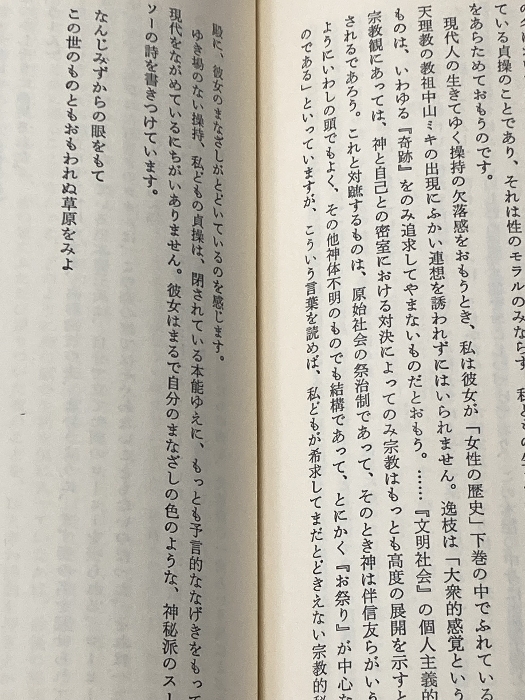 ている貞操のことであり、それは性のモラルのみならず、私どもの
をあらためておもうのです。
現代人の生きてゆく操持の欠落感をおもうとき、私は彼女が「女性の歴史」下巻の中でふれている
天理教の教祖中山ミキの出現にふかい連想を誘われずにはいられません。逸枝は「大衆的感覚という
ものは、いわゆる『奇跡』をのみ追求してやまないものだとおもう。……『文明社会』の個人主義的
宗教観にあっては、神と自己との密室における対決によってのみ宗教はもっとも高度の展開を示すと
されるであろう。これと対蹠するものは、原始社会の祭治制であって、そのとき神は伴信友らがいう
ようにいわしの頭でもよく、その他神体不明のものでも結構であって、とにかく『お祭り』が中心な
のである」といっていますが、こういう言葉を読めば、私どもが希求してまだとどきえない宗教的
殿に、彼女のまなざしがとどいているのを感じます。
ゆき場のない操持、私どもの貞操は、閉されている本能ゆえに、もっとも予言的ななげきをもって
現代をながめているにちがいありません。彼女はまるで自分のまなざしの色のような、神秘派のスー
ソーの詩を書きつけています。
なんじみずからの眼をもて
この世のものともおもわれぬ草原をみよ